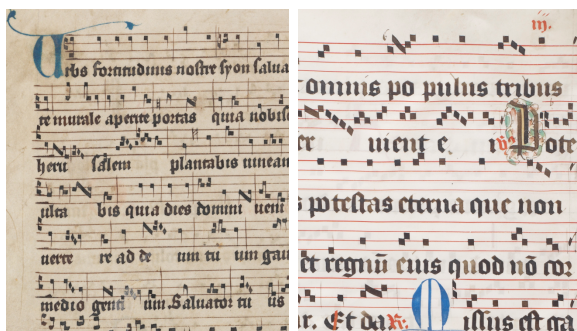 Urbs fortitudinis nostre syon salua
te murale aperite portas quia nobisc
heru salem plantabis uineam
ulta bis quia dies domini ueni
uerte re ad de um tu um gau
medio genti um. Saluator tu us
iij.
t omnis po pulus tribus
er uient e i V Pote
s potestas eterna que non
et regnū eius quod nō cor
r. Et da R. M issus est ga